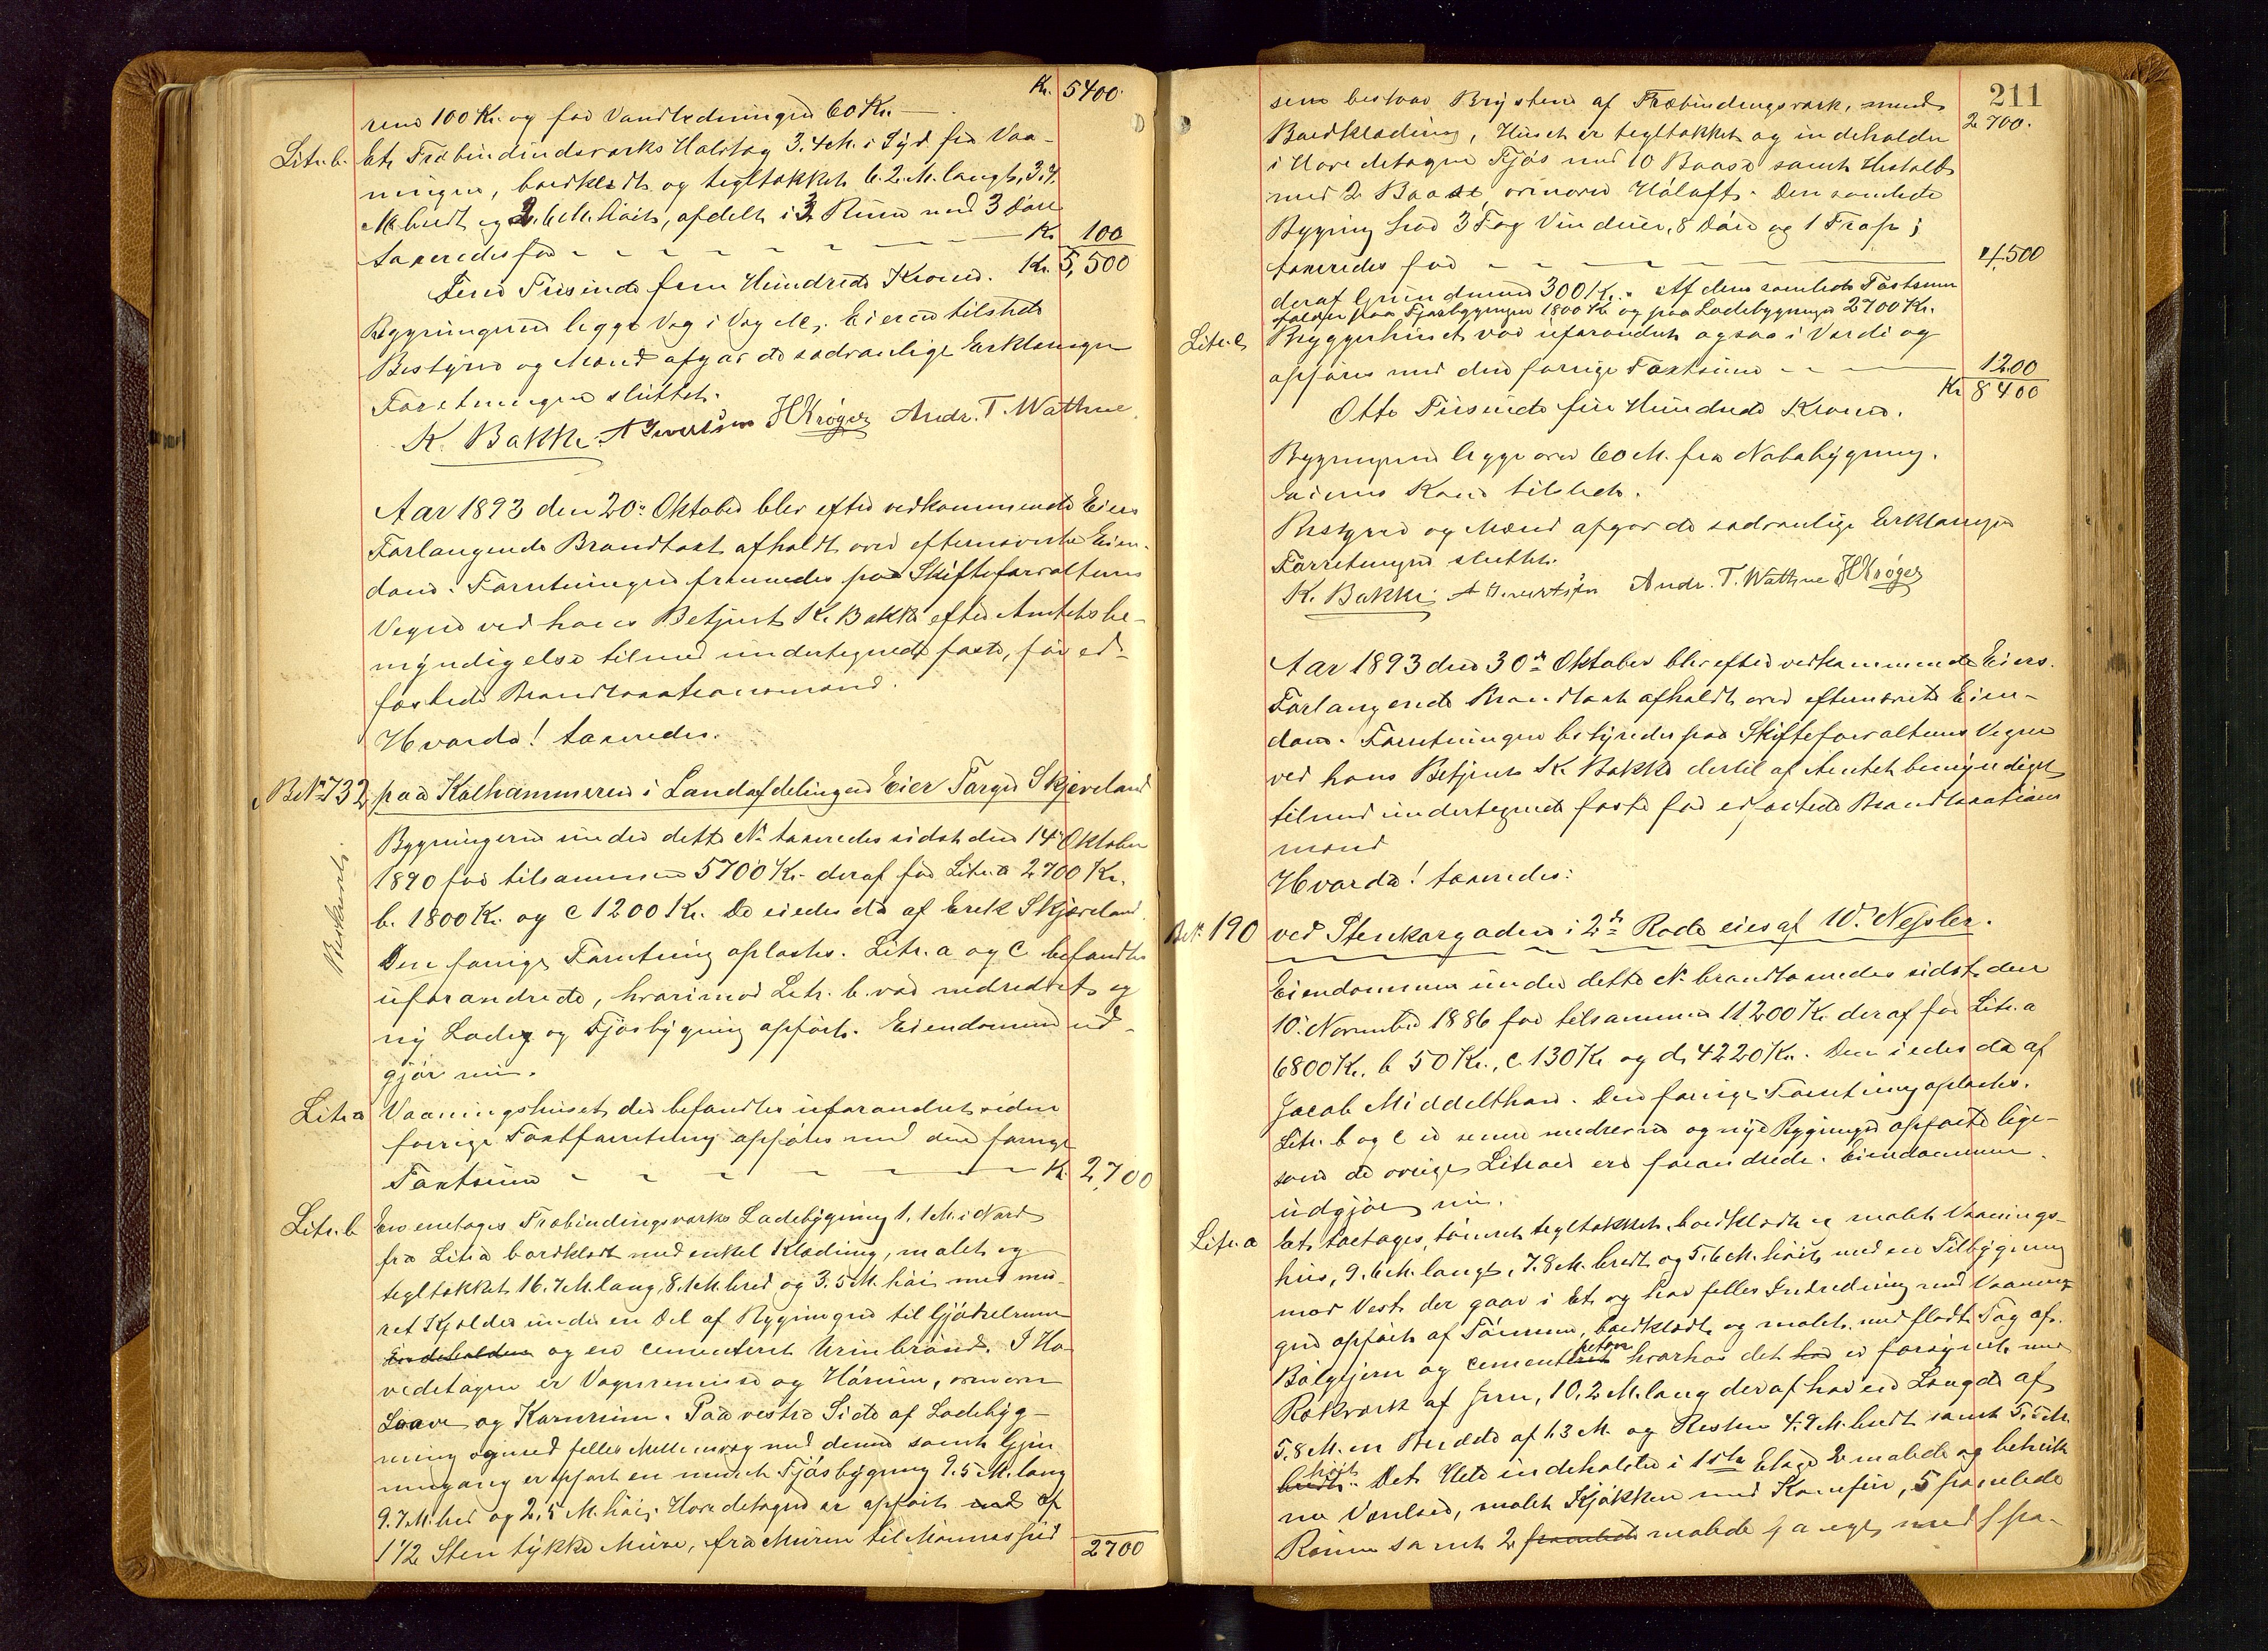 Kr. 5400
rene 100 Kr. og for Vandledningen 60 Kr. —
Litr. b. Et Træbindindsværks Halvtag 3.4 M. i Syd fra Vaa-
ningen, bordklædt og tegltækket 6.2 M. langt, 3.4
M bredt og 2.6 M. høit, afdelt i 3 Rum med 3 Døre
taxeredes for - - - - - Kr 100
Fem Tusinde fem Hundrede Kroner. Kr. 5,500
Bygningerne ligge Væg i Væg Eieren tilstede
Bestyrer og Mænd afgav de sædvanlige Erklæringer
Forretningen sluttet.
K. Bakke. A Ivertsen H Krøger Andr. T. Wathne.
Aar 1893 den 20de Oktober blev efter vedkommende Eiers
Forlangende Brandtaxt afholdt over efternævnte Eien-
dom. Forretningen fremmedes paa Skifteforvalterens
Vegne ved hans Betjent K. Bakke efter Amtets be-
myndigelse tilmed undertegnede faste, for ed-
fæstede Brandtaxationsmænd.
Hvorda! taxeredes.
Bet No 732 paa Kalhammeren i Landafdelingen Eier Torger Skjæveland
Beskrevet.
Bygningerne under dette No taxeredes sidst den 14de Oktober
1890 for tilsammen 5700 Kr. deraf for Litr. a 2700 Kr.
b. 1800 Kr. og c 1200 Kr. De eiedes da af Erik Skjæveland.
Den forrige Forretning oplæstes. Litr. a og c befandtes
uforandrede, hvorimod Litr. b. var nedrevet og
ny Lade og Fjøsbygning opført. Eiendommen ud-
gjør nu.
Litr. a Vaaningshuset der befandtes uforandret siden
forrige Taxtforretning opføres med den forrige
Taxtsum - - - - - Kr. 2,700
Litr. b En enetages Træbindingsværks Ladebygning 1.1 M. i Nord
fra Litr. a bordklædt med enkel Klædning, malet og
tegltækket 16.7 M. lang, 8.1 M. bred og 3.5 M. høi med mu-
ret Kjelder under en Del af Bygningen til Gjødselrum
Indeholder og en cementeret Urinbrønd. I Ho
vedetagen er Vognremise og Hørum, oven over
Laave og Kornrum. Paa vestre Side af Ladebyg-
ning og med felles Mellemvæg med denne samt Gjen
nemgang er opført en muret Fjøsbygning 9.5 M. lang
9.7 M. bred og 2.5 M. høi; Hovedetagen er opført med af
1 1/2 Sten tykke Mure, fra Muren til Mønnespid
2700
211
sen bestaar Brysten af Træbindingsværk, med 2700.
Bordklædning, Huset er tegltækket og indeholder
i Hovedetagen Fjøs med 10 Baase samt Hestald
med 2 Baase, ovenover Høloft. Den samlede
Bygning har 3 Fag Vinduer, 8 Døre og 1 Trap;
taxeredes for - - - - - 4,500
deraf Grundmuren 300 Kr.. Af den samlede Taxtsum
falder paa Fjøsbygningen 1800 Kr og paa Ladebygningen 2700 Kr.
Litr. c Bryggerhuset var uforandret ogsaa i Værdi og
opføres med den forrige Taxtsum - - - 1200
Kr 8400
Otte Tusinde fire Hundrede Kroner.
Bygningerne ligge over 60 M. fra Nabobygning.
Eierens Kone tilstede.
Bestyrer og Mænd afgav de sædvanlige Erklæringer
Forretningen sluttet.
K. Bakke. A Ivertsen Andr. T. Wathne H Krøger
Aar 1893 den 30de Oktober blev efter vedkommende Eiers
Forlangende Brandtaxt afholdt over efternævnte Eien-
dom. Forretningen bestyredes paa Skifteforvalterens Vegne
ved hans Betjent K. Bakke dertil af Amtet bemyndiget
tilmed undertegnede faste for edfæstede Brandtaxations
mænd
Hvorda! taxeredes:
Bet No 190 ved Stenkargaden i 2de Rode eies af W. Nessler.
Eiendommen under dette No brandtaxeredes sidst den
10de November 1886 for tilsammen 11200 Kr. deraf for Litr. a
6800 Kr. b 50 Kr., c. 130 Kr og d. 4220 Kr. Den eiedes da af
Jacob Middelthon. Den forrige Forretning oplæstes.
Litr. b og c er senere nedrevne og nye Bygninger opførte lige-
som de øvrige Litraer ere forandrede. Eiendommen
udgjør nu.
Litr. a Et toetages, tømret tegltækket, bordklædt og malet Vaanings-
hus, 9.6 M. langt, 7.8 M. bredt og 5.6 M. høit med en Tilbygning
mod Vest der gaar i Et og har felles Indredning med Vaanin
gen opført af Tømmer, bordklædt og malet, med fladt Tag af
Bølgejern og cementeret beton hvorhos det har er forsynet med
Rækværk af Jern, 10,2 M. lang deraf har en Længde af
5,8 M. en Bredde af 1.3 M. og Resten 4.9 M. bredt samt 5.5 M.
bredt. høit. Det Hele indeholder i 1ste Etage 2 malede og betruk
ne Værelser, malet Kjøkken med Komfur, 5 panelede
Rum samt 2 panelede malede Gange med Spa-